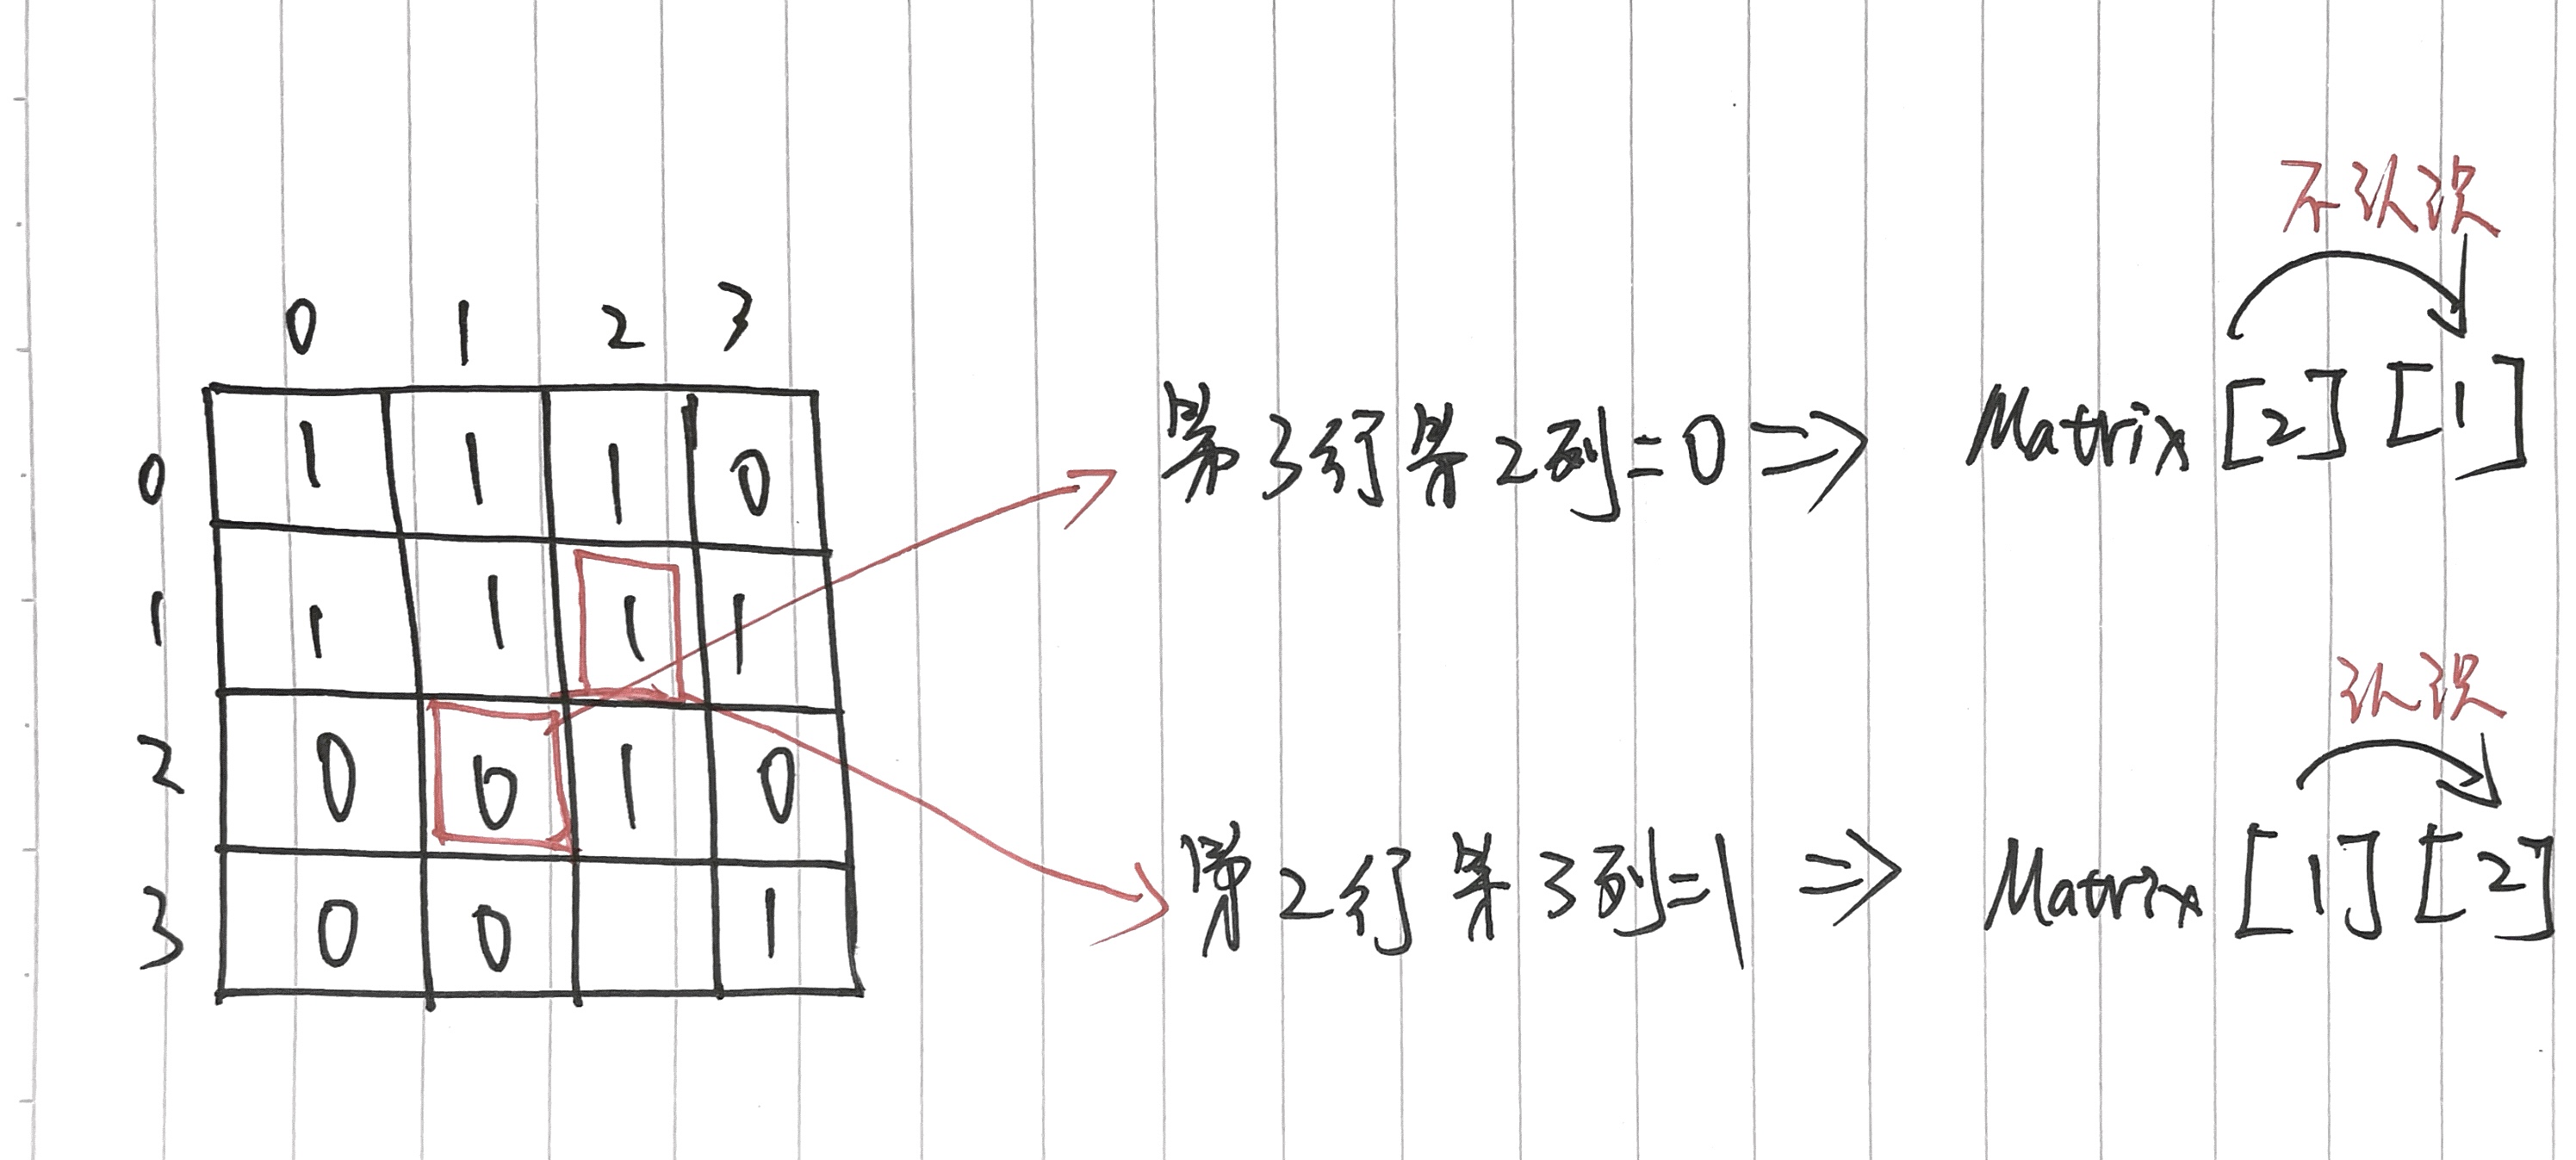 0 1 2 3
0 1 1 1 0
1 1 1 1 1
2 0 0 1 0
3 0 0 1
第3行第2列=0 => Matrix [2] [1]
不认识
第2行第3列=1 => Matrix [1] [2]
认识